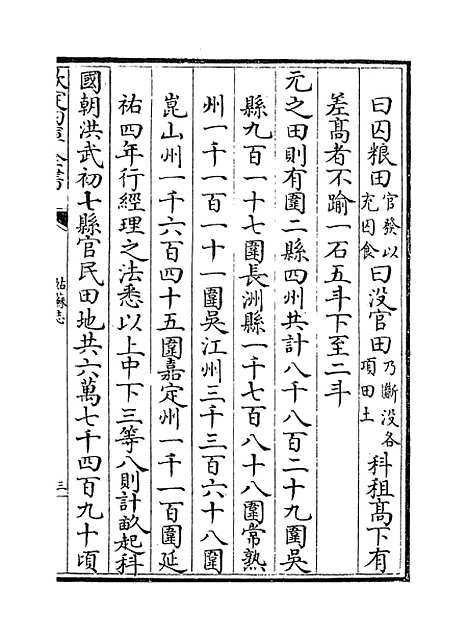 曰囚粮田官發以充囚食曰没官田乃斷没各項田土科租髙下有
差髙者不踰一石五斗下至二斗
元之田則有圍二縣四州共計八千八百二十九圍吳
縣九百一十七圍長洲縣一千七百八十八圍常熟
州一千一百一十一圍吳江州三千三百六十八圍
崑山州一千六百四十五圍嘉定州一千一百圍延
祐四年行經理之法悉以上中下三等八則計畝起科
國朝洪武初七縣官民田地共六萬七千四百九十頃
欽定四庫全書
姑蘇志
三